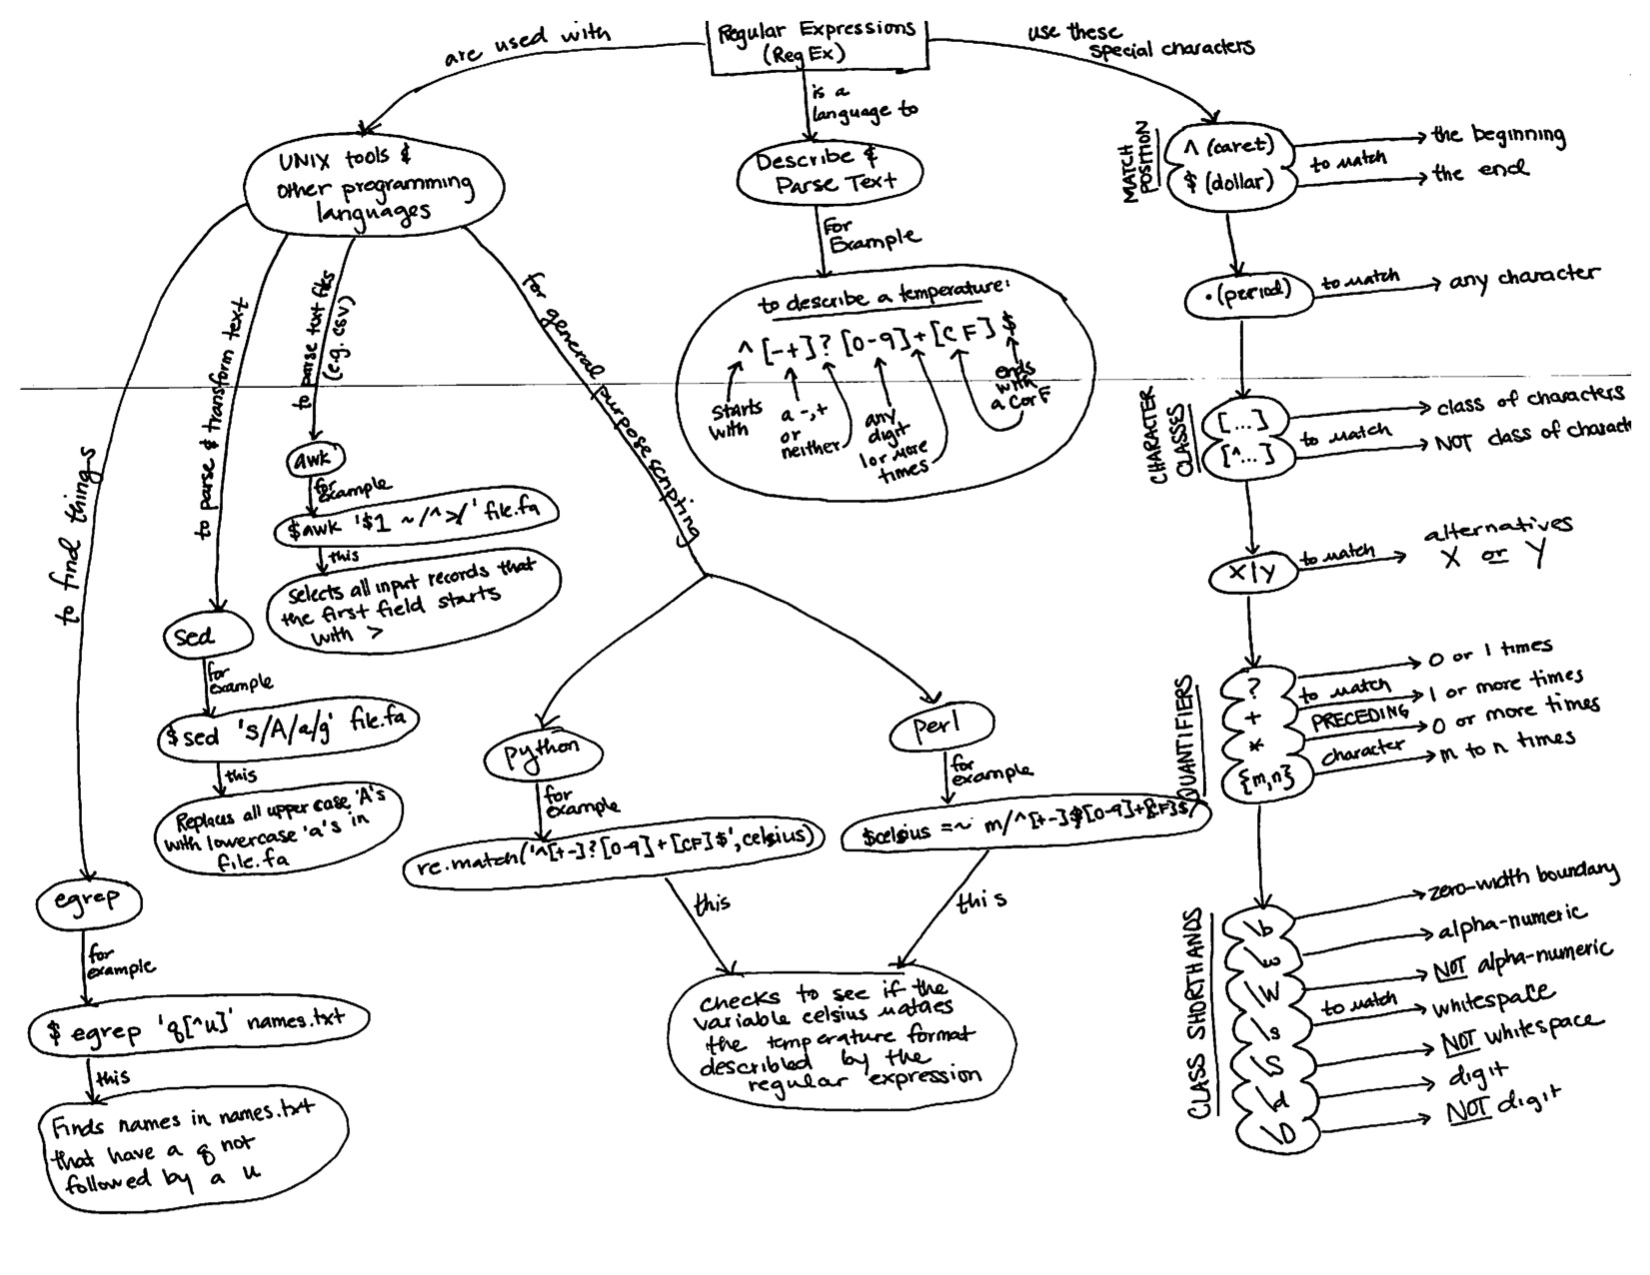 Regular Expressions
(RegEx)
are used with
UNIX tools &
other programming
languages
to find things
egrep
for
example
$ egrep 'q[^u]' names.txt
this
Finds names in names.txt
that have a q not
followed by a u
to parse & transform text
sed
for
example
$sed 's/A/a/g' file.fa
this
Replaces all upper case 'A's
with lowercase 'a's in
file.fa
to parse text files
(e.g. csv)
awk
for
example
$awk '$1 ~/^>/' file.fa
this
selects all input records that
the first field starts
with >
for general purpose scripting
python
for
example
re.match('^[+-]?[0-9]+[CF]$',celsius)
this
perl
for
example
$celsius =~ m/^[+-]?[0-9]+[CF]$/
this
checks to see if the
variable celsius mataes
the temperature format
describled by the
regular expression
is a
language to
Describe &
Parse Text
For
Example
to describe a temperature:
^[-+]?[0-9]+[CF]$
starts
with
a -,+
or
neither
any
digit
1 or more
times
ends
with
a C or F
use these
special characters
MATCH
POSITION
^ (caret)
$ (dollar)
to match
the beginning
the end
.(period)
to match
any character
CHARACTER
CLASSES
[...]
[^...]
to match
class of characters
NOT class of charact
X|y
to match
alternatives
X or Y
QUANTIFIERS
?
+
*
{m,n}
to match
PRECEDING
character
0 or 1 times
1 or more times
0 or more times
m to n times
CLASS SHORTHANDS
\b
\w
\W
\s
\S
\d
\D
to match
zero-width boundary
alpha-numeric
NOT alpha-numeric
whitespace
NOT whitespace
digit
NOT digit